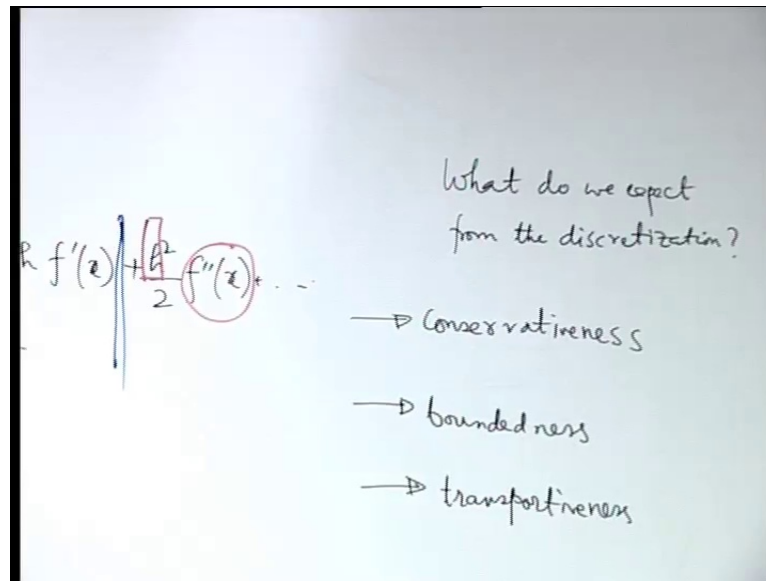 h f'(x) + h²/2 f''(x) + ...
What do we expect
from the discretization?
→ Conservativeness
→ boundedness
→ transportiveness